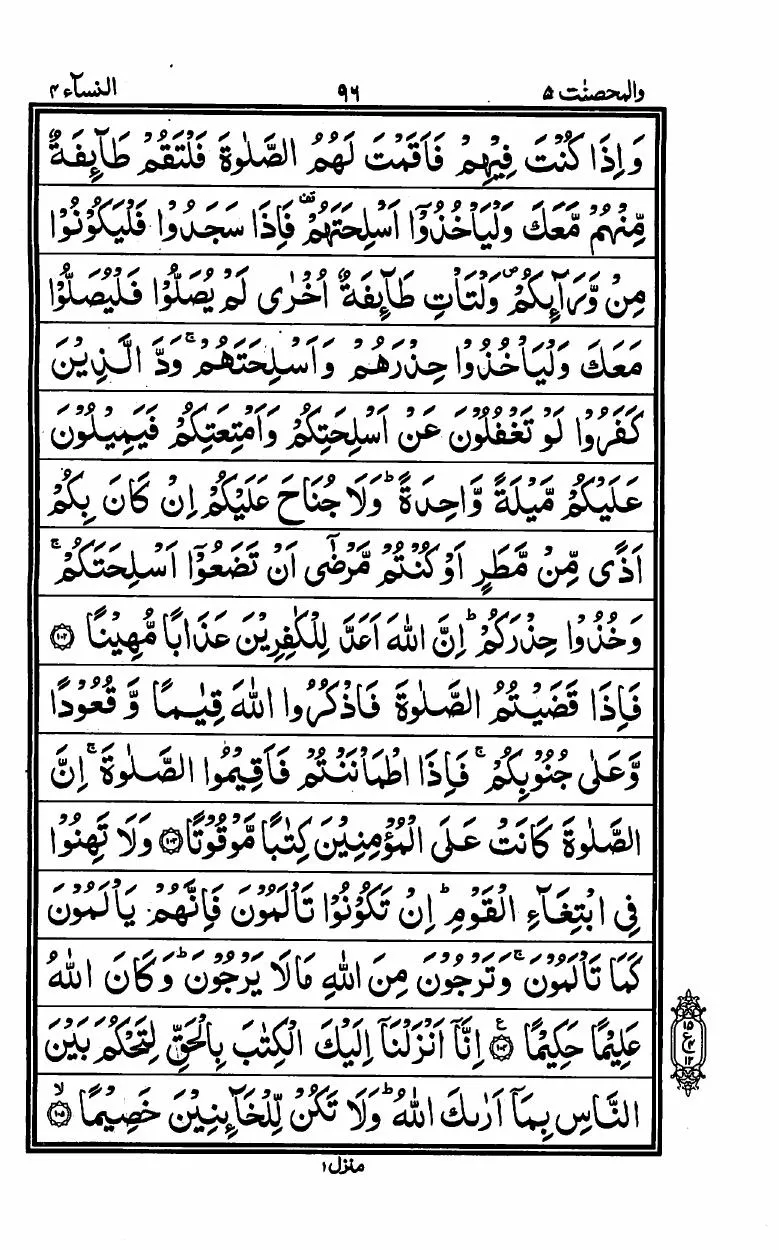 والمحصنت ۵
۹۶
النسآء ۴
وَاِذَا كُنْتَ فِيْهِمْ فَاَقَمْتَ لَهُمُ الصَّلٰوةَ فَلْتَقُمْ طَآىِٕفَةٌ
مِّنْهُمْ مَّعَكَ وَلْيَاْخُذُوْۤا اَسْلِحَتَهُمْ ۫ فَاِذَا سَجَدُوْا فَلْيَكُوْنُوْا
مِنْ وَّرَآىِٕكُمْ ۪ وَلْتَاْتِ طَآىِٕفَةٌ اُخْرٰى لَمْ يُصَلُّوْا فَلْيُصَلُّوْا
مَعَكَ وَلْيَاْخُذُوْا حِذْرَهُمْ وَاَسْلِحَتَهُمْ ۚ وَدَّ الَّذِيْنَ
كَفَرُوْا لَوْ تَغْفُلُوْنَ عَنْ اَسْلِحَتِكُمْ وَاَمْتِعَتِكُمْ فَيَمِيْلُوْنَ
عَلَيْكُمْ مَّيْلَةً وَّاحِدَةً ؕ وَلَا جُنَاحَ عَلَيْكُمْ اِنْ كَانَ بِكُمْ
اَذًى مِّنْ مَّطَرٍ اَوْ كُنْتُمْ مَّرْضٰۤى اَنْ تَضَعُوْۤا اَسْلِحَتَكُمْ ۚ
وَخُذُوْا حِذْرَكُمْ ؕ اِنَّ اللّٰهَ اَعَدَّ لِلْكٰفِرِيْنَ عَذَابًا مُّهِيْنًا ۝۱۰۲
فَاِذَا قَضَيْتُمُ الصَّلٰوةَ فَاذْكُرُوا اللّٰهَ قِيٰمًا وَّ قُعُوْدًا
وَّعَلٰى جُنُوْبِكُمْ ۚ فَاِذَا اطْمَاْنَنْتُمْ فَاَقِيْمُوا الصَّلٰوةَ ۚ اِنَّ
الصَّلٰوةَ كَانَتْ عَلَى الْمُؤْمِنِيْنَ كِتٰبًا مَّوْقُوْتًا ۝۱۰۳ وَلَا تَهِنُوْا
فِى ابْتِغَآءِ الْقَوْمِ ؕ اِنْ تَكُوْنُوْا تَاْلَمُوْنَ فَاِنَّهُمْ يَاْلَمُوْنَ
كَمَا تَاْلَمُوْنَ ۚ وَتَرْجُوْنَ مِنَ اللّٰهِ مَا لَا يَرْجُوْنَ ؕ وَكَانَ اللّٰهُ
عَلِيْمًا حَكِيْمًا ۝۱۰۴ ع اِنَّاۤ اَنْزَلْنَاۤ اِلَيْكَ الْكِتٰبَ بِالْحَقِّ لِتَحْكُمَ بَيْنَ
النَّاسِ بِمَاۤ اَرٰىكَ اللّٰهُ ؕ وَلَا تَكُنْ لِّلْخَآىِٕنِيْنَ خَصِيْمًا ۝۱۰۵ ۙ
۱۵
ع
۴
۱۲
منزل ۱